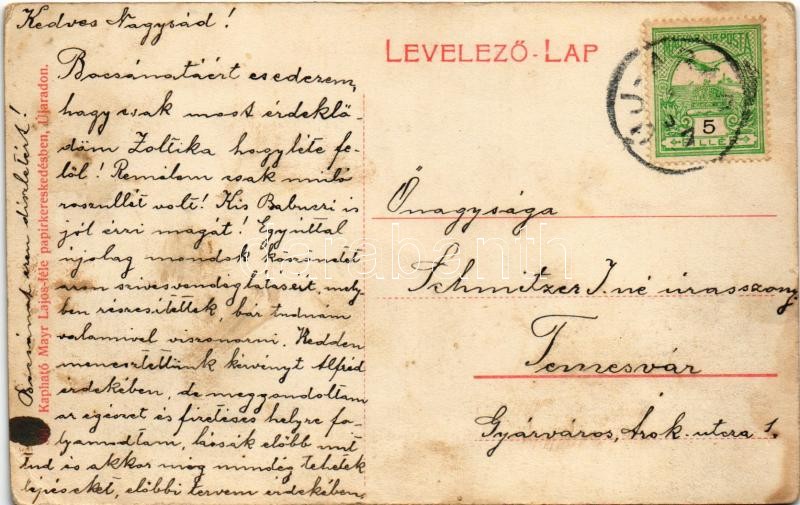 Kedves Nagysád!
Bocsánatáért esedezem,
hagy csak most érdeklő-
döm Zoltika hogyléte fe-
löl! Remélem csak muló
rosszullét volt! Kis Babuczi is
jól érzi magát! Egyúttal
újolag mondok köszönetet
azon szivesvendéglátásért, mely-
ben részesitettek, bár tudnám
valamivel viszonozni. Kedden
menesztettünk kérvényt Alfréd
érdekében, de meggondoltam
az egészet és fizetéses helyre fo-
lyamodtam, lássák előbb mit
tud is akkor még mindég tehetek
lépéseket, előbbi tervem érdekében.
Bocsánat ezen díszletért!
Kapható Mayr Lajos-féle papirkereskedésben, Újaradon.
LEVELEZŐ-LAP
MAGYAR KIR. POSTA
5
FILLÉR
Önagysága
Schmitzer J.né úrasszony
Temesvár
Gyárváros, Árok utcza 1.
darabanth